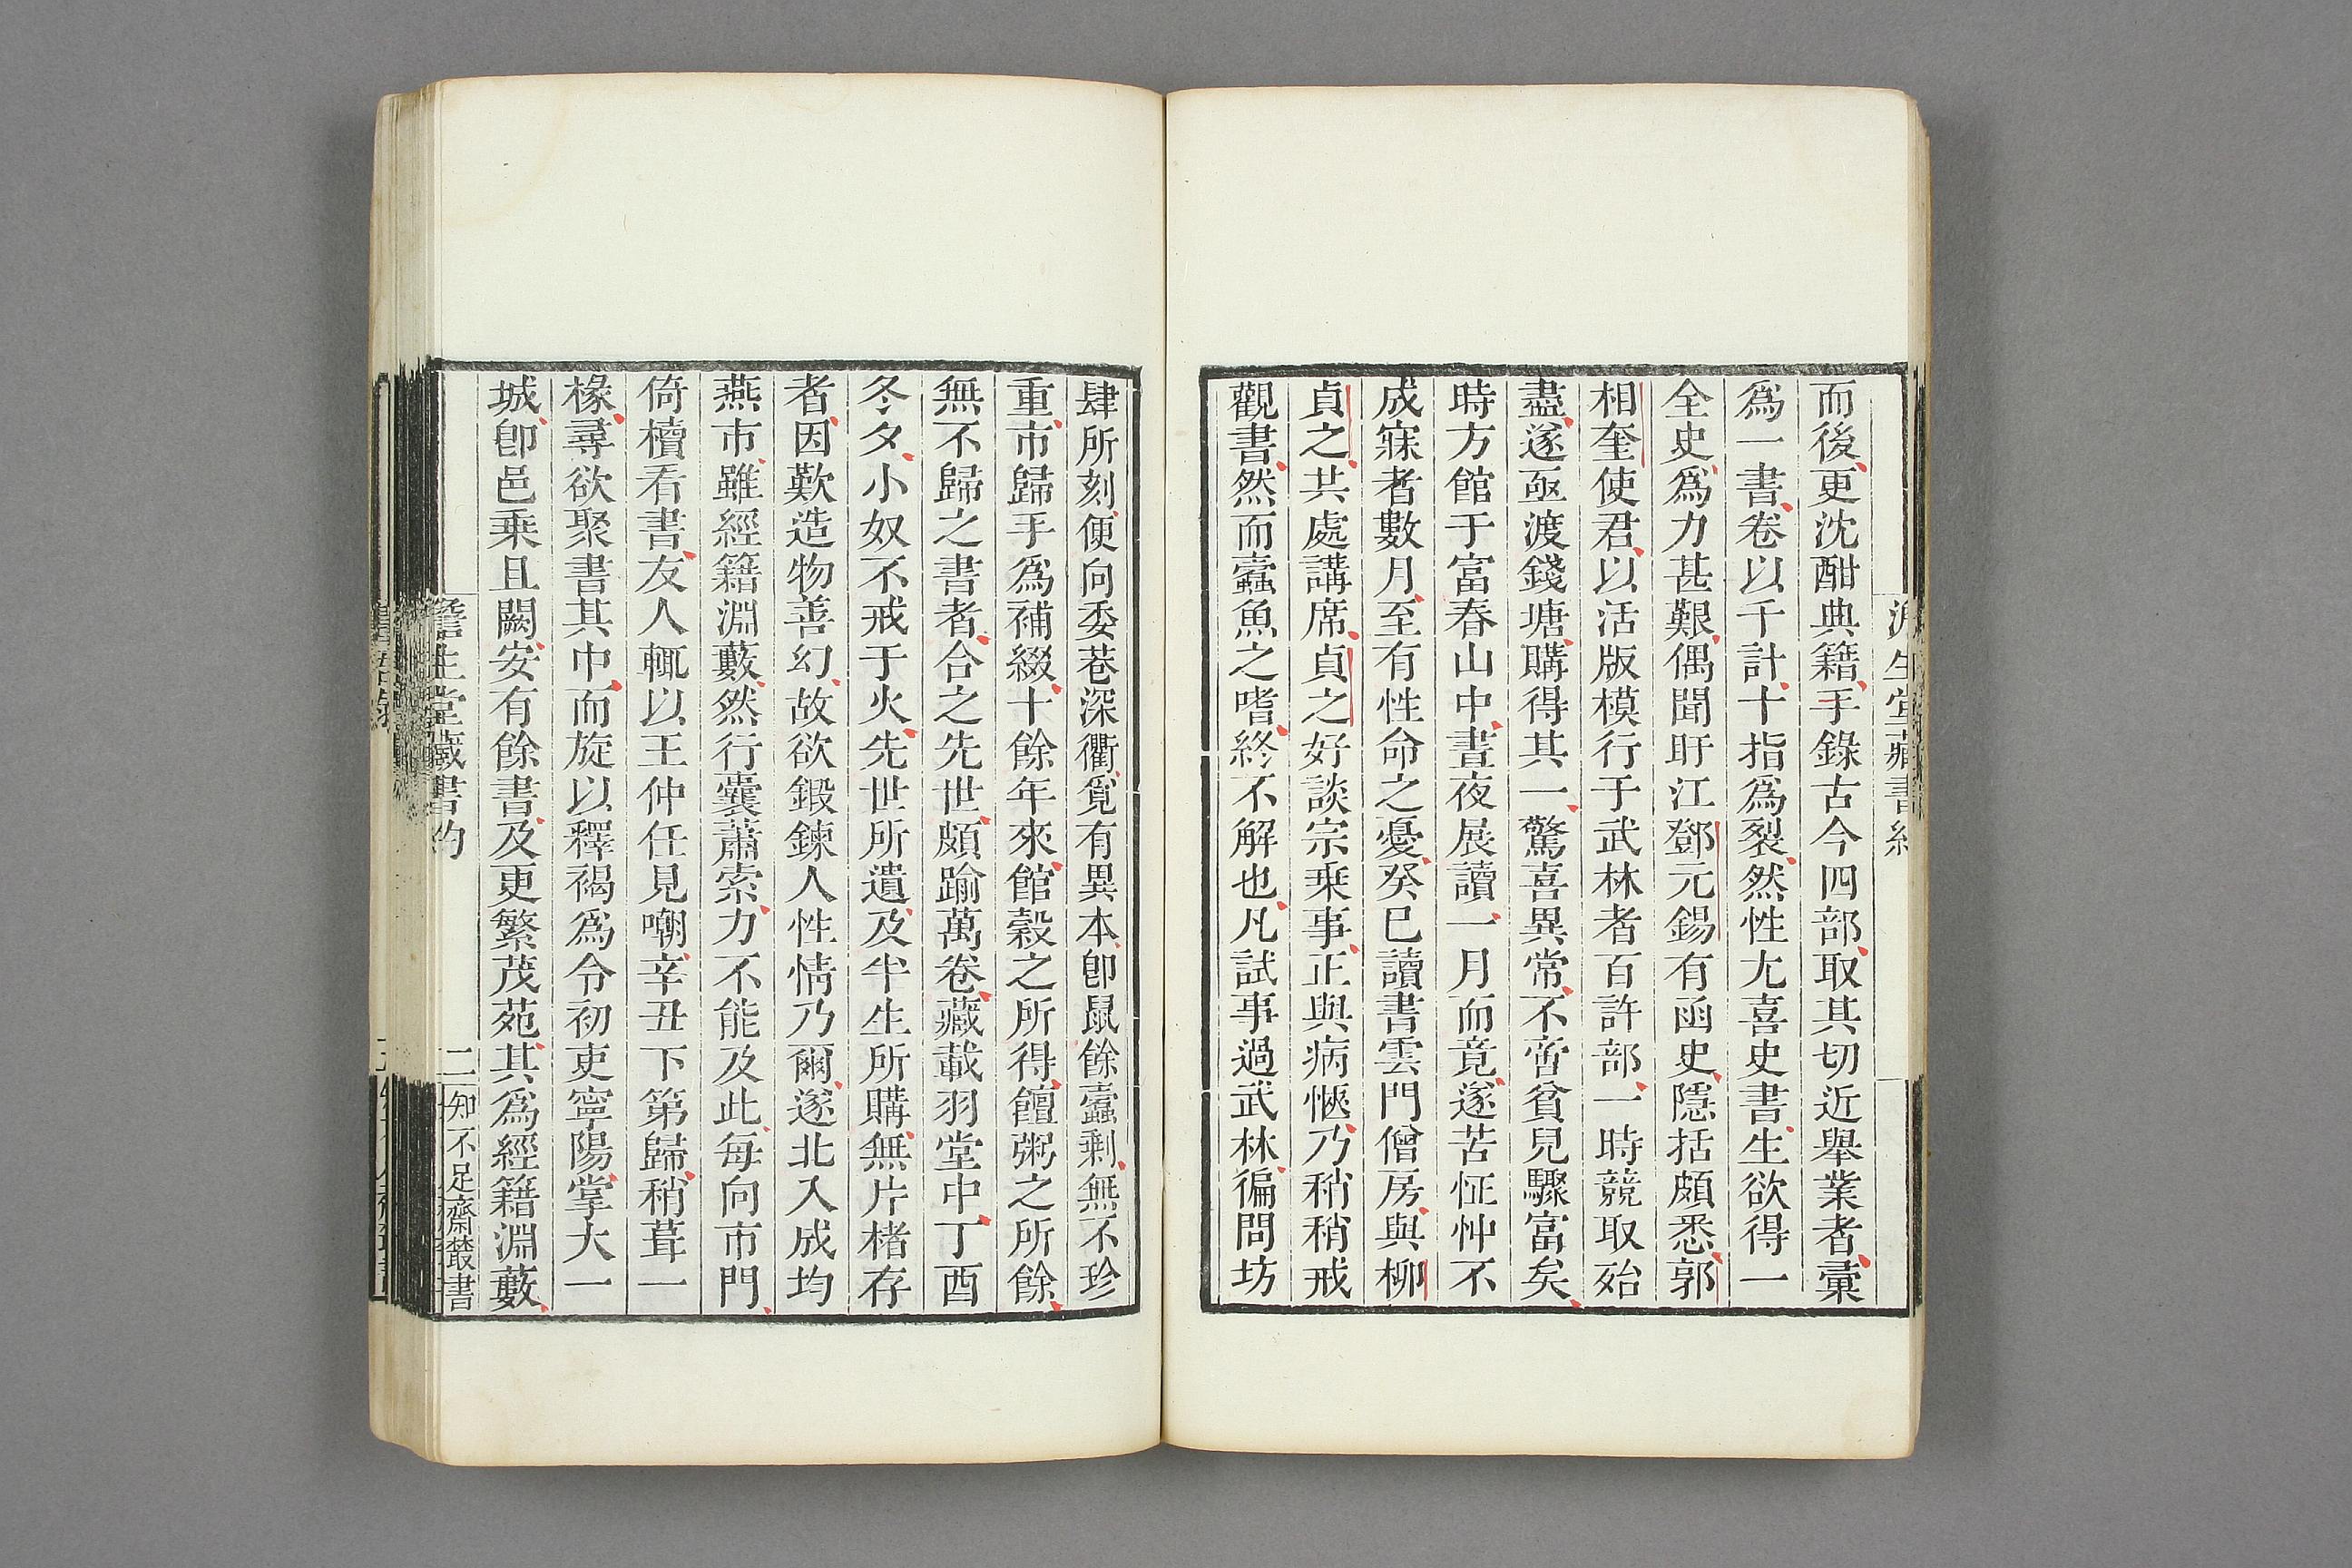 而後更沈酣典籍手錄古今四部取其切近舉業者彙
爲一書卷以千計十指爲裂然性尤喜史書生欲得一
全史爲力甚艱偶聞盱江鄧元錫有函史隱括頗悉郭
相奎使君以活版模行于武林者百許部一時競取殆
盡遂亟渡錢塘購得其一驚喜異常不啻貧兒驟富矣
時方館于富春山中晝夜展讀一月而竟遂苦怔忡不
成寐者數月至有性命之憂癸巳讀書雲門僧房與柳
貞之共處講席貞之好談宗乗事正與病愜乃稍稍戒
觀書然而蠹魚之嗜終不解也凡試事過武林徧問坊
肆所刻便向委巷深衢覓有異本卽鼠餘蠹剩無不珍
重市歸手爲補綴十餘年來館穀之所得饘粥之所餘
無不歸之書者合之先世頗踰萬卷藏載羽堂中丁酉
冬夕小奴不戒于火先世所遺及半生所購無片楮存
者因歎造物善幻故欲鍛鍊人性情乃爾遂北入成均
燕市雖經籍淵藪然行囊蕭索力不能及此每向市門
倚櫝看書友人輒以王仲任見嘲辛丑下第歸稍葺一
椽尋欲聚書其中而旋以釋褐爲令初吏寧陽掌大一
城卽邑乗且闕安有餘書及更繁茂苑其爲經籍淵藪
澹生堂藏書約
二
知不足齋叢書